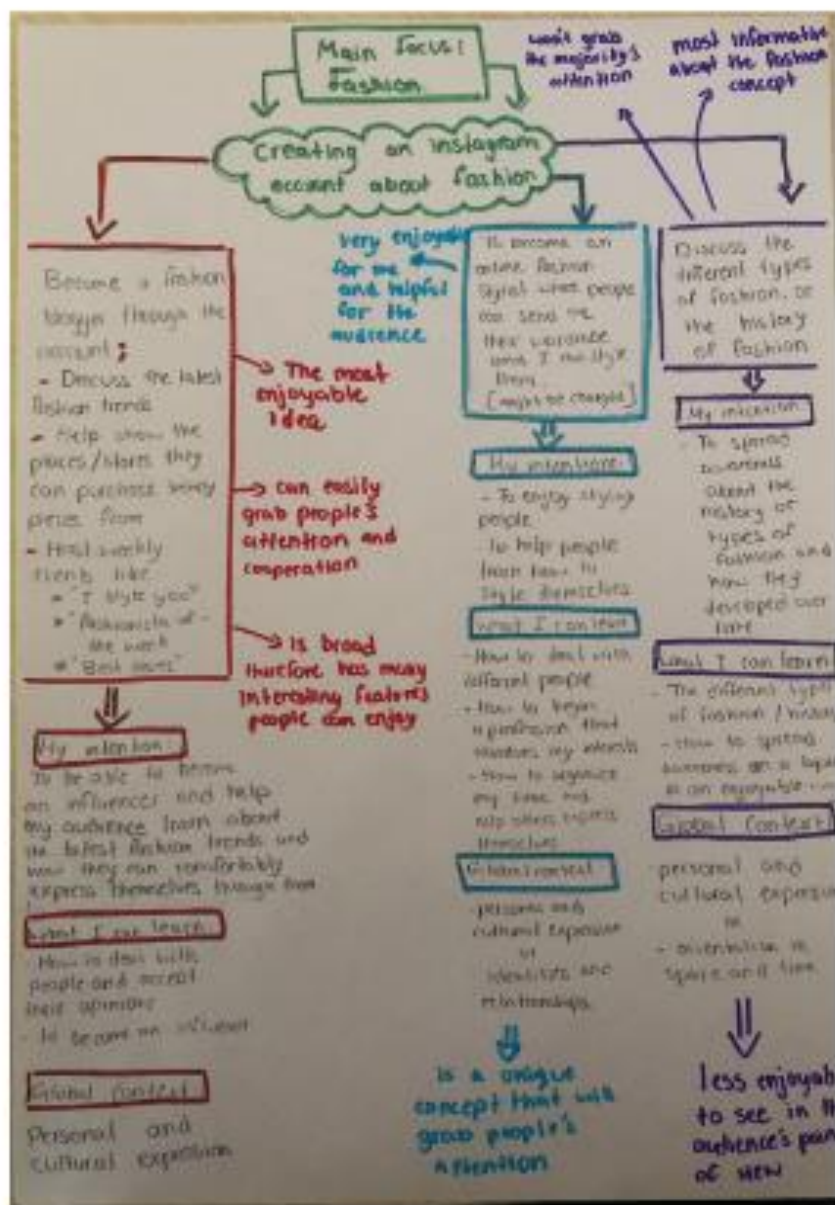 Main focus:
Fashion
Creating an instagram
account about fashion
won't grab
the majority's
attention
most informative
about the fashion
concept
Become a fashion
blogger through the
account;
- Discuss the latest
fashion trends
- Help show the
places/stores they
can purchase
pieces from
- Host weekly
events like
* "I style you"
* "fashionista of
the week"
* "Best
The most
enjoyable
idea
can easily
grab people's
attention and
cooperation
Is broad
therefore has many
interesting features
people can enjoy
My intention:
To be able to become
an influencer and help
my audience learn about
the latest fashion trends and
how they can comfortably
express themselves through them
What I can learn:
- How to deal with
people and accept
their opinions
- to become an influencer
Global context:
Personal and
cultural expression
very enjoyable
for me
and helpful
for the
audience
To become an
online fashion
stylist where people
can send me
their wardrobe
and I
them
[might be changed]
My intention:
- To enjoy styling
people
- To help people
learn how to
style themselves
What I can learn
- How to deal with
different people
- How to begin
a profession that
involves my interests
- How to organize
my time and
help others express
themselves
Global context
- personal and
cultural expression
or
identities and
relationships
is a unique
concept that will
grab people's
attention
Discuss the
different types
of fashion, or
the history
of fashion
My intention
- To spread
awareness
about the
history or
types of
fashion and
how they
developed over
time
What I can learn
- The different types
of fashion / history
- How to spread
awareness on a topic
in an enjoyable
Global Context
- personal and
cultural expression
or
- orientation in
space and time
less enjoyable
to see in the
audience's point
of view